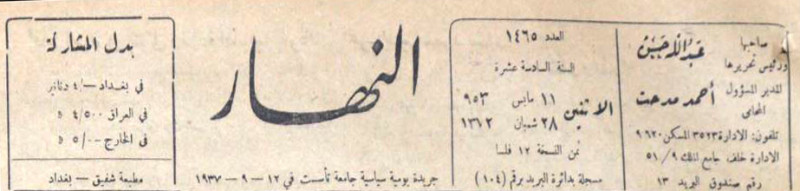 صاحبها
ورئيس تحريرها
عبدالله حسين
المدير المسؤول
المحامي
أحمد مدحت
تلفون: الادارة ٣٥٢٣ المسكن ٩٦٢٠
الادارة خلف جامع الملك ٥١/٩
رقم صندوق البريد ١٣
العدد ١٤٦٥
السنة السادسة عشرة
الاثنين
١١ مايس ٩٥٣
٢٨ شعبان ١٣٧٢
ثمن النسخة ١٢ فلسا
مسجلة بدائرة البريد برقم (١٠٤)
النهار
جريدة يومية سياسية جامعة تأسست في ١٢ - ٩ - ١٩٣٧
بدل المشاركة
في بغداد —/٤ دنانير
في العراق ٤/٥٠٠ »
في الخارج ٥/٠٠ »
مطبعة شفيق - بغداد